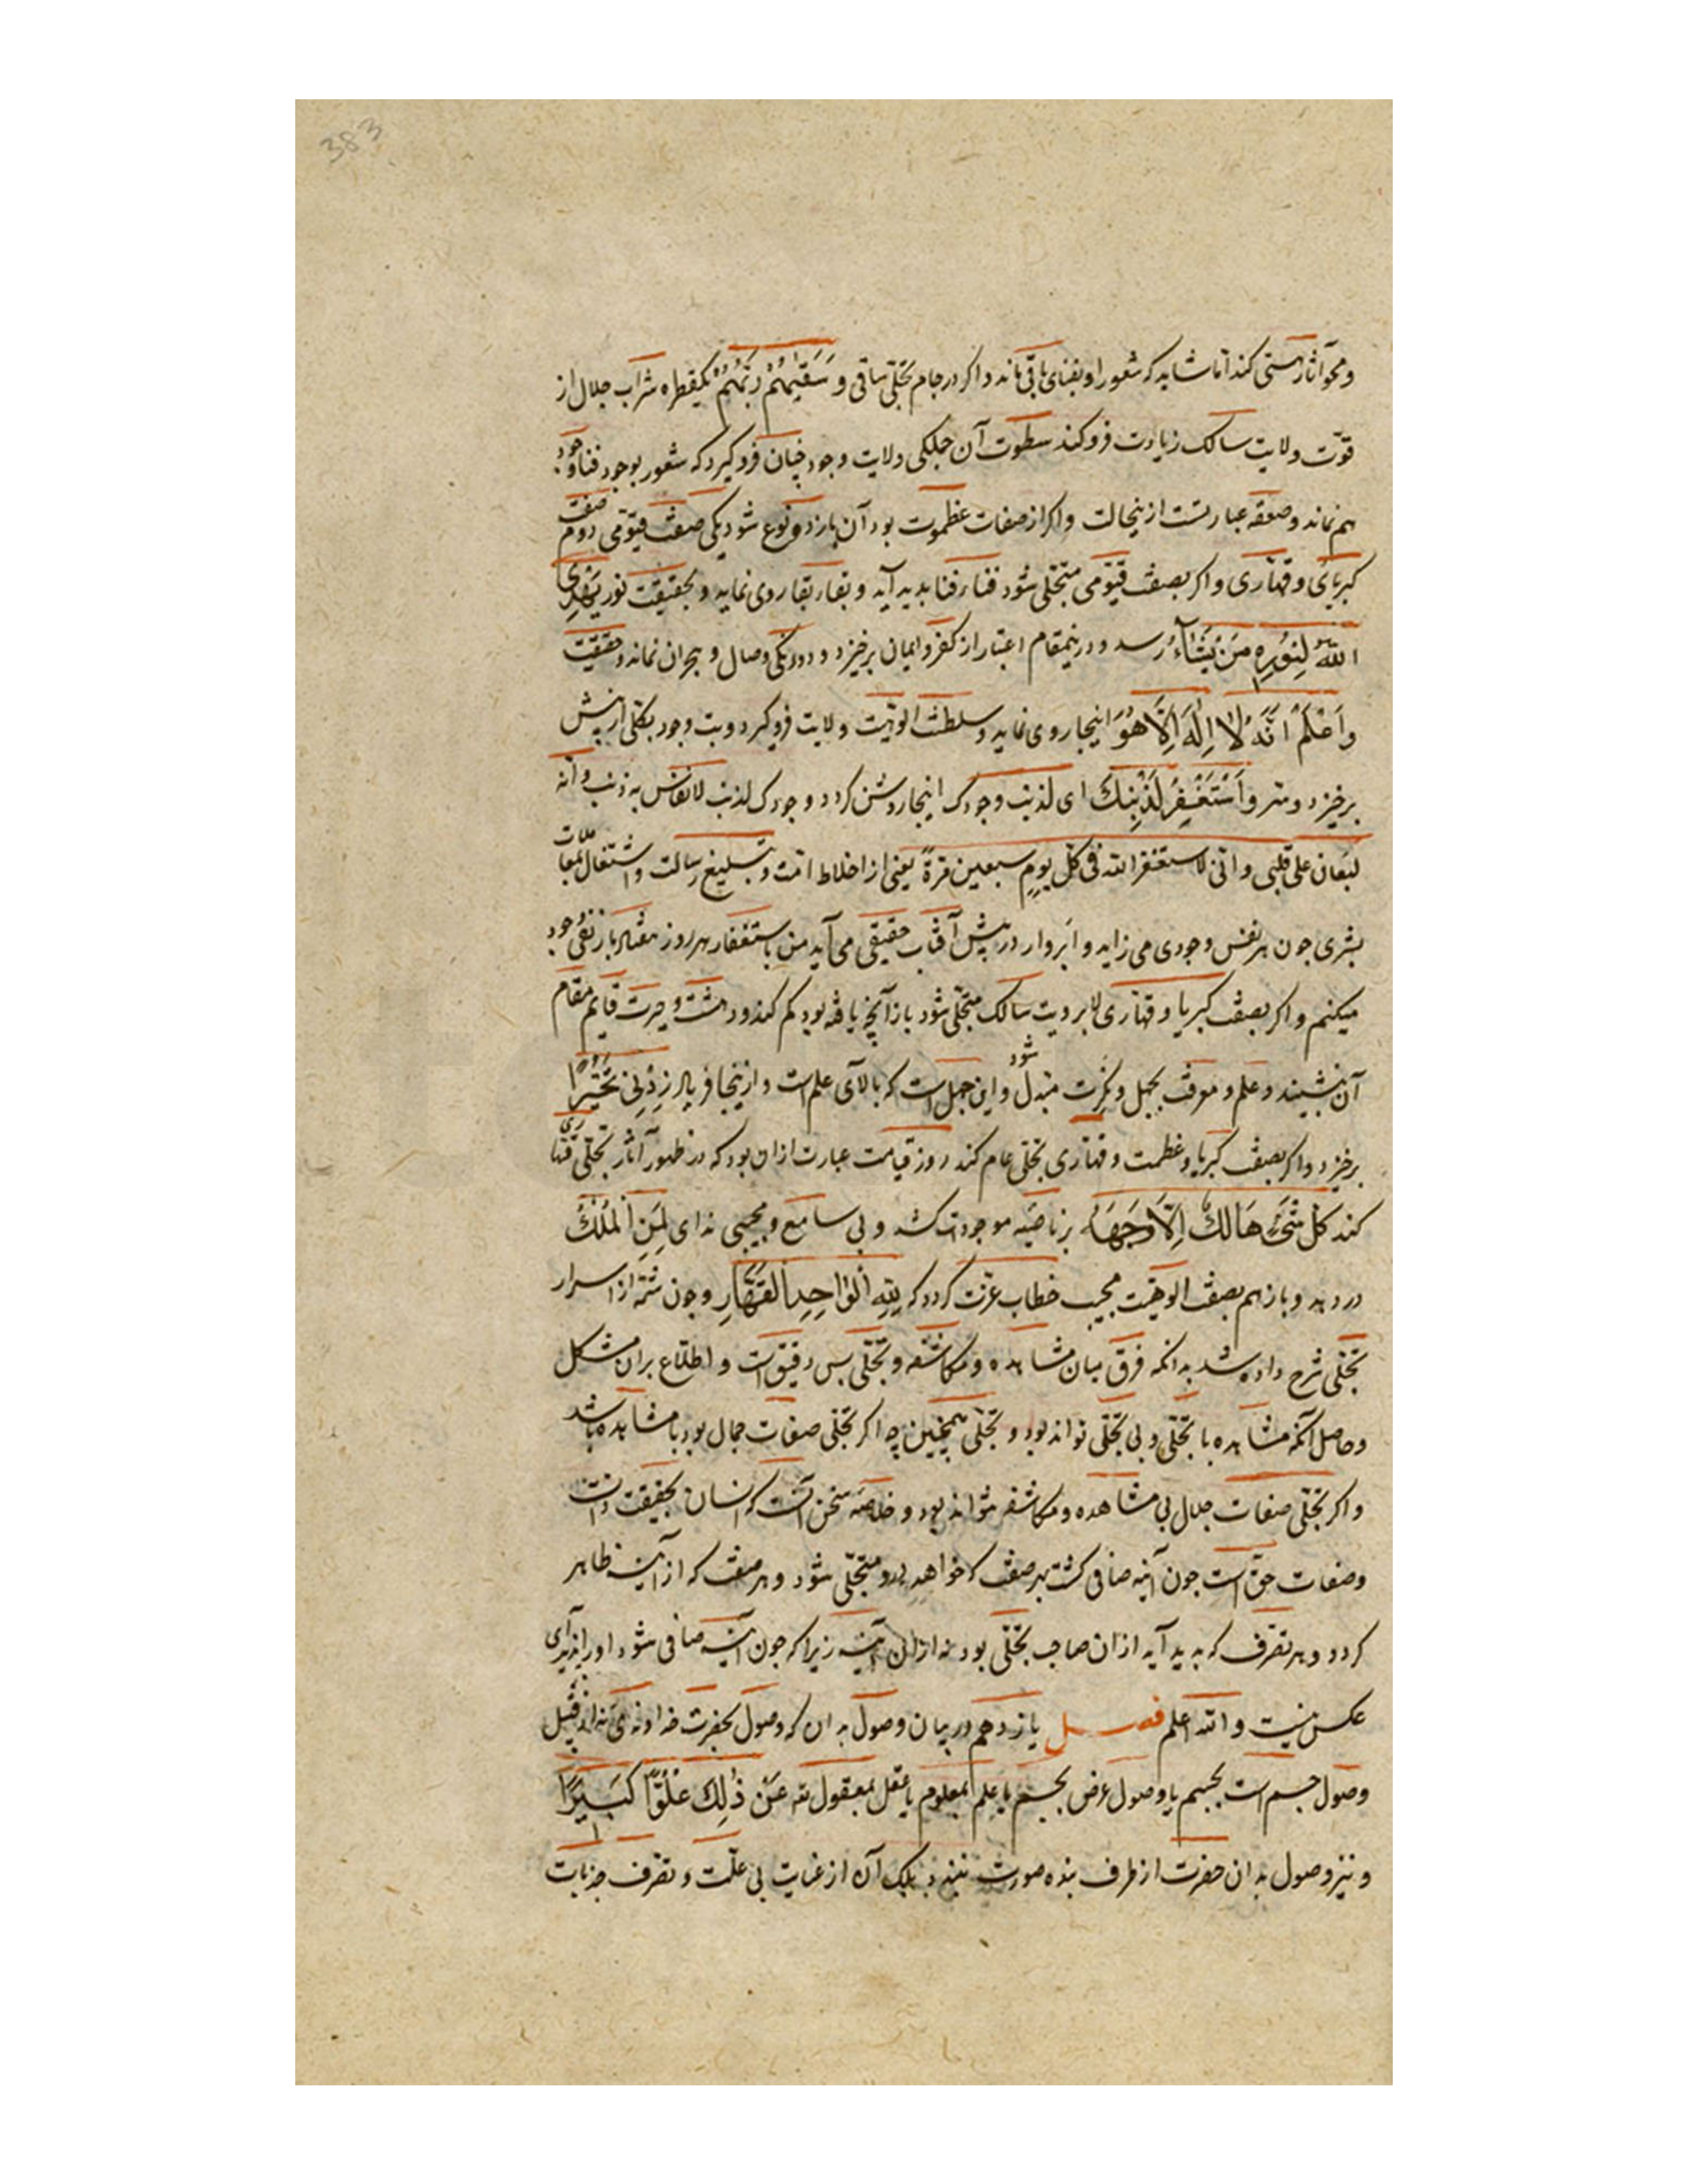 383
و محو آثار هستی کند اما شاید که شعور او بفنای باقی ماند و اکر در جام تجلی ساقی و سَقَیٰهُمْ رَبُّهُمْ یکقطره شراب جلال از
قوّت ولایت سالک زیادت فرو کند سطوت آن جملکی ولایت وجود چنان فرو کیرد که شعور بوجود فنا وجود
هم نماند و صعقه عبارتست ازینحالت و اکر از صفات عظموت بود آن باز دو نوع شود یکی صفت قیّومی دوم صفت
کبریای و قهّاری و اکر بصفت قیّومی متجلی شود فناء فنا بدید آید و بقاء بقا روی نماید و بحقیقت نور یَهْدِی
اللهُ لِنُورِهِ مَنْ یَشَآءُ رسد و درینمقام اعتبار از کفر و ایمان برخیزد و دورنکی وصال و هجران نماند و حقیقت
وَاعْلَمْ اَنَّهُ لَا اِلٰهَ اِلَّا هُوَ اینجا روی نماید و سلطنت الوهیّت ولایت فرو کیرد و بت وجود بکلی از پیش
برخیزد و سر وَاسْتَغْفِرْ لِذَنْبِكَ ای لذنب وجودک اینجا روشن کردد وجودک لذنب لا یقاس به ذنب و انه
لیغان علی قلبی و انی لاستغفر الله فی کل یوم سبعین مرةً یعنی از اخلاط امّت و تبلیغ رسالت و اشتغال بمعاملات
بشری جون هر نفس وجودی می زاید و ابروار در پیش آفتاب حقیقی می آید من باستغفار هر روز هفتاد بار نفی وجود
میکنم و اکر بصفت کبریا و قهّاری لابر ویت سالک متجلی شود باز آنچه یافته بود کم کند و دهشت و حیرت قایم مقام
آن بنشیند و علم و معرفت بجهل و نکرت مبدل شود و این جهل است که بالای علم است و ازینجا فریاد زِدْنِی تَحَیُّرًا
برخیزد و اکر بصفت کبریا و عظمت و قهّاری تجلی عام کند روز قیامت عبارت ازان بود که در ظهور آثار تجلی قهاری
کند کُلُّ شَیْءٍ هَالِكٌ اِلَّا وَجْهَهُ بر ناصیه موجودات کشد و بی سامع و مجیبی ندای لِمَنِ الْمُلْكُ
در دهد و باز هم بصفت الوهیّت مجیب خطاب عزّت کردد که لِلّٰهِ الْوَاحِدِ الْقَهَّارِ و جون شمّهٔ از اسرار
تجلی شرح داده شد بدانکه فرق میان مشاهده و مکاشفه و تجلی بس دقیق است و اطلاع بران مشکل
و حاصل آنکه مشاهده با تجلی و بی تجلی تواند بود و تجلی همچنین چه اکر تجلی صفات جمال بود با مشاهده باشد
و اکر تجلی صفات جلال بی مشاهده و مکاشفه تواند بود و خلاصه سخن آنست که انسان بحقیقت ذات
وصفات حق است جون آینه صافی کشت بهر صفت که خواهد بدو متجلی شود و هر صفت که از آینه ظاهر
کردد و هر تصرف که بدید آید ازان صاحب تجلی بود نه ازان آینه زیرا که جون آینه صافی شود او را پذیرای
عکس نیست والله اعلم فصل یازدهم در بیان وصول بدان که وصول بحضرت خداوندی نه از قبیل
وصول جسم است بجسم یا وصول عرض بجسم یا علم بمعلوم یا عقل بمعقول عَنْ ذٰلِكَ عُلُوًّا کَبِیرًا
و نیز وصول بدان حضرت از طرف بنده صورت نبندد بلک آن از عنایت بی علّت و تصرف جذبات